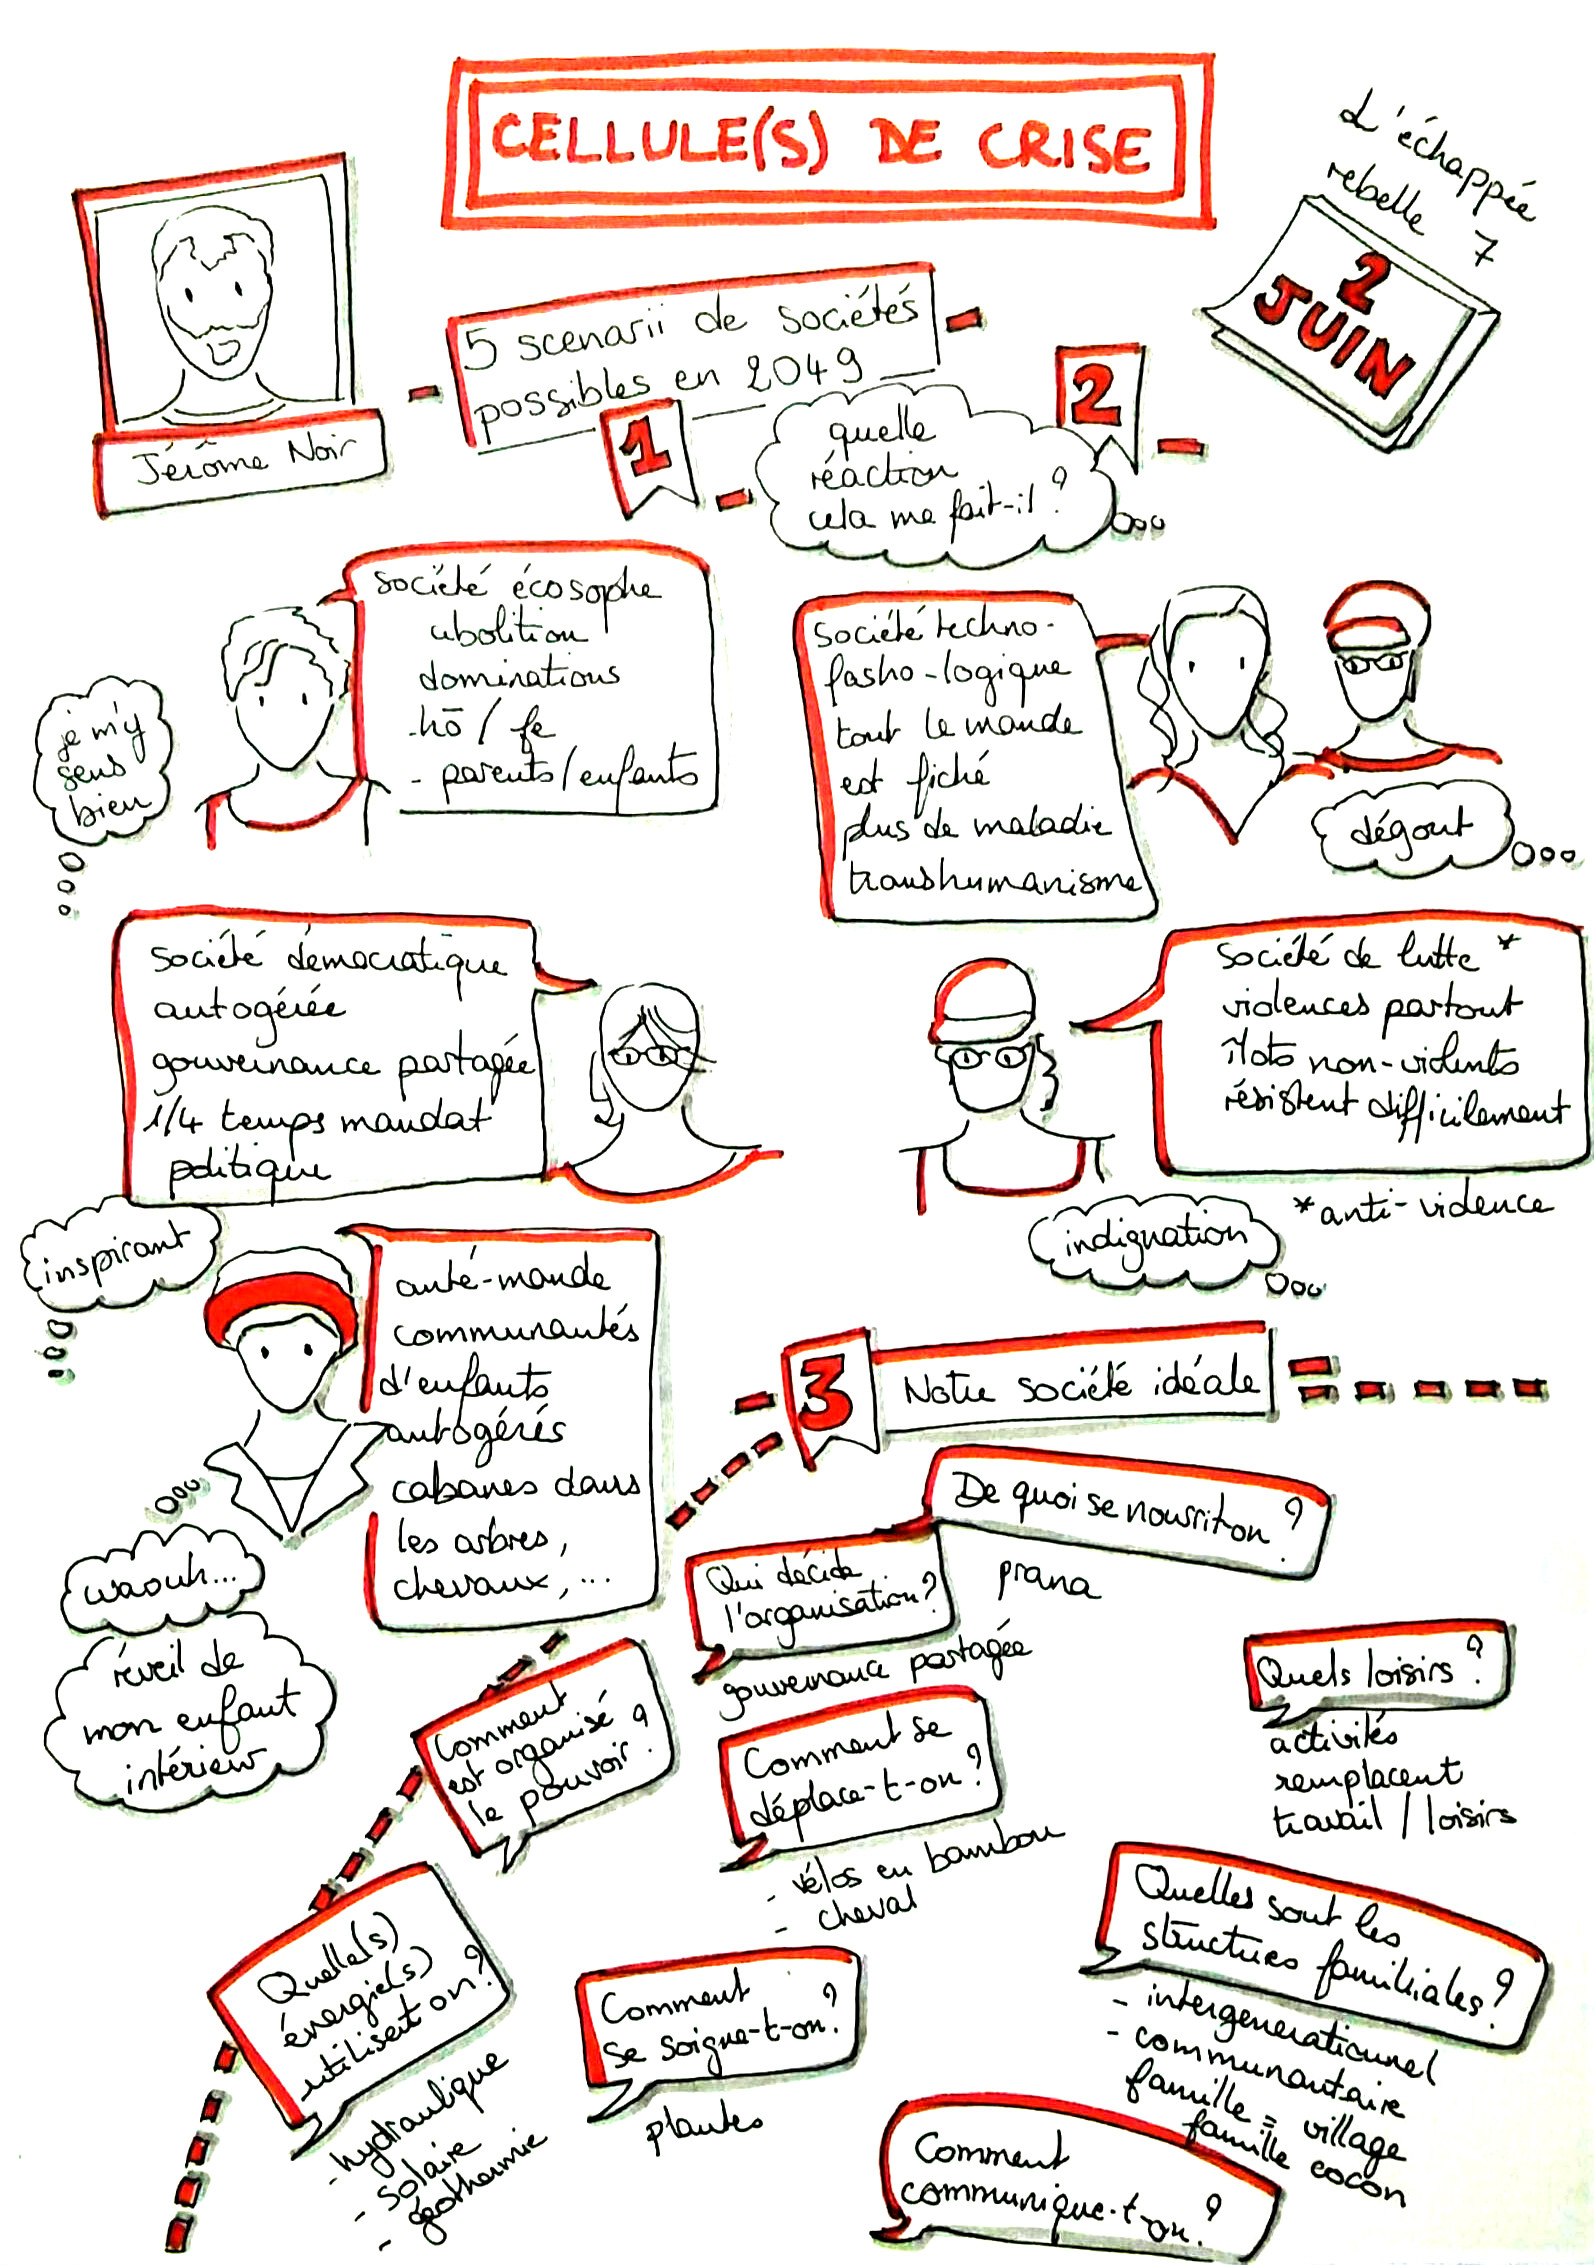 CELLULE(S) DE CRISE
L'échappée
rebelle 7
2
JUIN
Jérôme Noir
5 scenarii de sociétés
possibles en 2049
1
quelle
réaction
cela me fait-il ?
2
société écosophe
abolition
dominations
-hō / fe
- parents/enfants
je m'y
sens
bien
société techno-
fasho-logique
tout le monde
est fiché
plus de maladie
transhumanisme
dégout
société démocratique
autogérée
gouvernance partagée
1/4 temps mandat
politique
inspirant
société de lutte *
violences partout
îlots non-violents
résistent difficilement
*anti-violence
indignation
anté-monde
communautés
d'enfants
autogérés
cabanes dans
les arbres,
chevaux, ...
waouh...
réveil de
mon enfant
intérieur
3
Notre société idéale
De quoi se nourrit-on ?
prana
Qui décide
l'organisation ?
gouvernance partagée
Quels loisirs ?
activités
remplacent
travail / loisirs
Comment
est organisé
le pouvoir ?
Comment se
déplace-t-on ?
- vélos en bambou
- cheval
Quelles sont les
structures familiales ?
- intergenerationnel
- communautaire
famille = village
famille cocon
Quelle(s)
énergie(s)
utilisent on ?
- hydraulique
- solaire
- géothermie
Comment
se soigne-t-on ?
plantes
Comment
communique-t-on ?